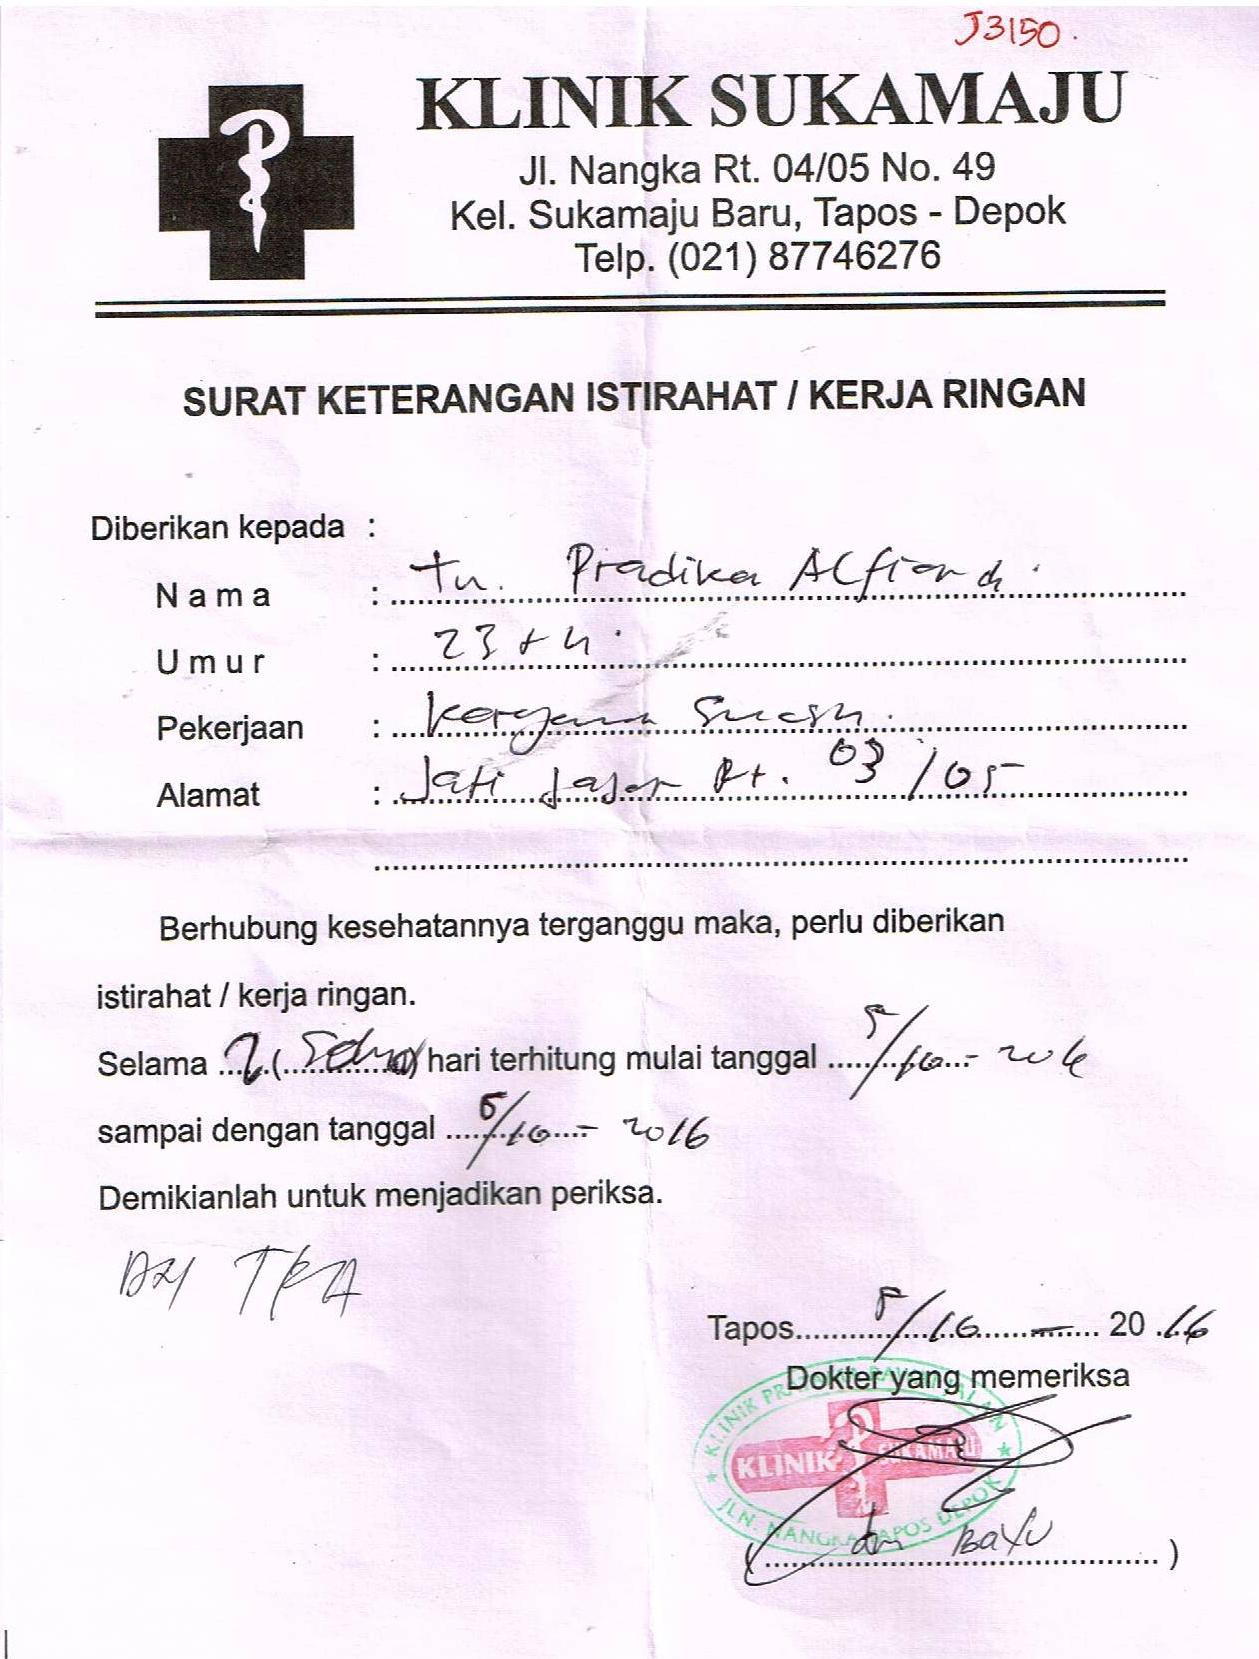 J3150.
KLINIK SUKAMAJU
Jl. Nangka Rt. 04/05 No. 49
Kel. Sukamaju Baru, Tapos - Depok
Telp. (021) 87746276
SURAT KETERANGAN ISTIRAHAT / KERJA RINGAN
Diberikan kepada :
Nama : Tn. Pradika Alfiandi
Umur : 23 th.
Pekerjaan :
Alamat : Jati Jajar Rt. 03/05
Berhubung kesehatannya terganggu maka, perlu diberikan
istirahat / kerja ringan.
Selama ( ) hari terhitung mulai tanggal 5/10 - 2016
sampai dengan tanggal 5/10 - 2016
Demikianlah untuk menjadikan periksa.
Tapos 5/10 - 2016
Dokter yang memeriksa
KLINIK SUKAMAJU
JLN. NANGKA TAPOS DEPOK
( dr Bayu )